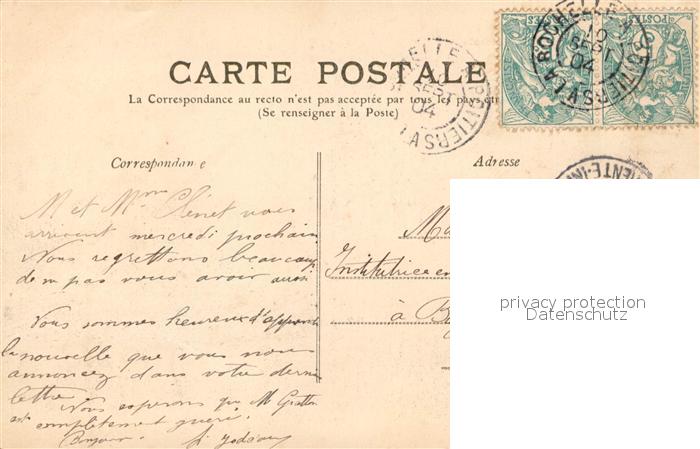 POSTES
POSTES
LA ROCHELLE A POITIERS
10
SEPT
04
CARTE POSTALE
La Correspondance au recto n'est pas acceptée par tous les pays
(Se renseigner à la Poste)
Correspondance
Adresse
M et Mme Clénet vous
arrivent mercredi prochain
Nous regrettons beaucoup
de ne pas vous avoir aussi
Vous sommes heureux d'apprendre
la nouvelle que vous nous
annoncez dans votre dernière
lettre
Nous esperons que M Gratton
est completement gueri.
Bonjour.
Institutrice en
à
privacy protection
Datenschutz